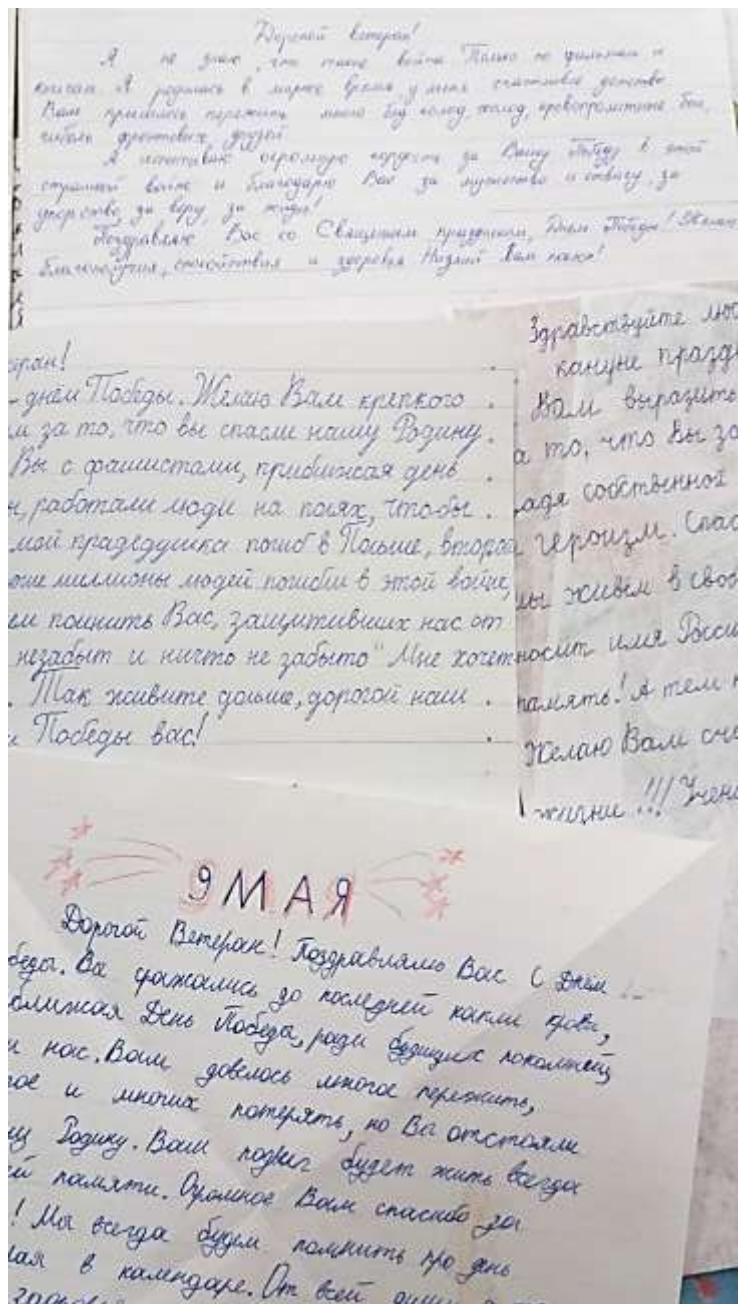 Дорогой ветеран!
Я не знаю, что такое война Только по фильмам и
книгам. Я родилась в мирное время, у меня счастливое детство
Вам пришлось пережить много бед голод, холод, кровопролитные бои,
гибель фронтовых друзей
Я испытываю огромную гордость за Вашу Победу в этой
страшной войне и благодарю Вас за мужество и отвагу, за
упорство, за веру, за жизнь!
Поздравляю Вас со Священным праздником, Днем Победы! Желаю
благополучия, спокойствия и здоровья Низкий Вам поклон!
еран!
днём Победы. Желаю Вам крепкого
м за то, что вы спасли нашу Родину.
Вы с фашистами, приближая день
ы, работали люди на полях, чтобы
мой прадедушка погиб в Польше, второй
ше миллионы людей погибли в этой войне,
ем помнить Вас, защитивших нас от
незабыт и ничто не забыто" Мне хочет
. Так живите дольше, дорогой наш
и Победы вас!
Здравствуйте лю
кануне празд
Вам выразить
а то, что Вы за
адя собственной
героизм. Спас
мы живём в своб
носит имя Росси
память! А тем
Желаю Вам сча
жизни!!! Учени
9 МАЯ
Дорогой Ветеран! Поздравляю Вас С Днём
беды. Вы сражались до последней капли крови,
ближая День Победы, ради будущих поколений
и нас. Вам довелось многое пережить,
ое и многих потерять, но Вы отстояли
шу Родину. Ваш подвиг будет жить всегда
ей памяти. Огромное Вам спасибо за
! Мы всегда будем помнить про день
мая в календаре. От всей души
здоровья